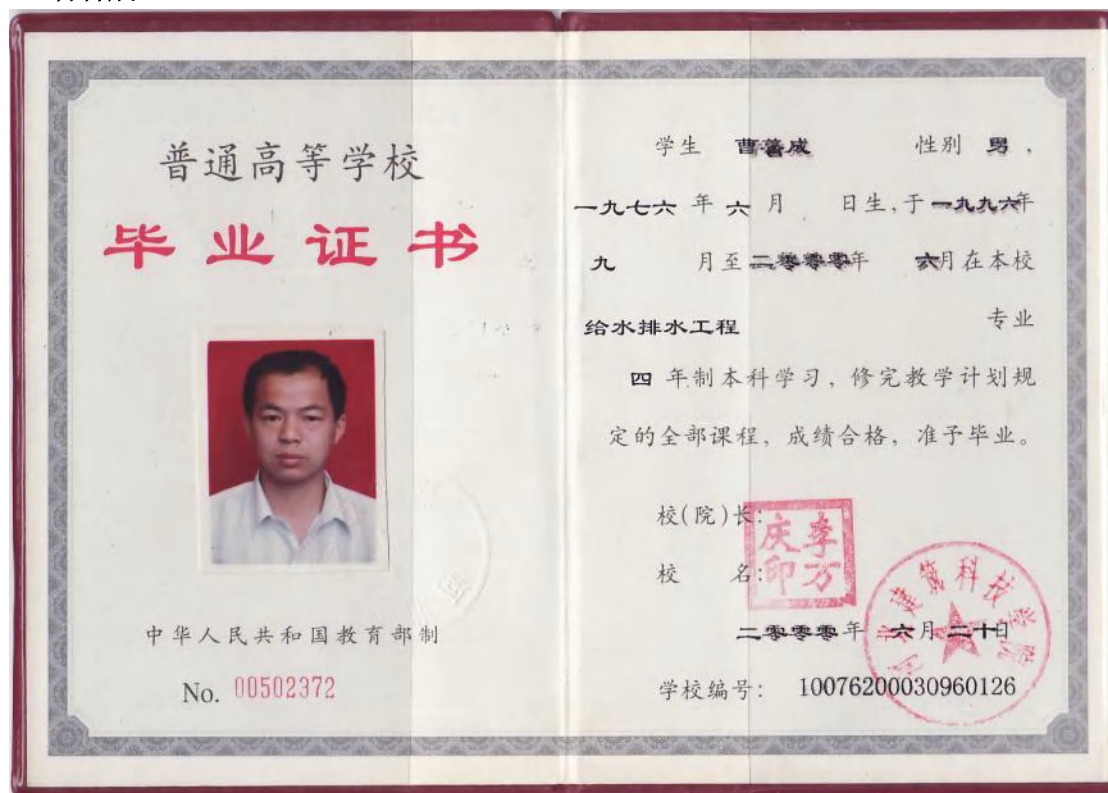 普通高等学校
毕业证书
中华人民共和国教育部制
No. 00502372
学生 曹 成 性别 男,
一九七六 年 六 月 日生,于一九九六年
九 月至二零零零年 六月在本校
给水排水工程 专业
四 年制本科学习,修完教学计划规
定的全部课程,成绩合格,准予毕业。
校(院)长:
李万庆印
校 名:
河北建筑科技学院
二零零零年 六月二十日
学校编号: 10076200030960126